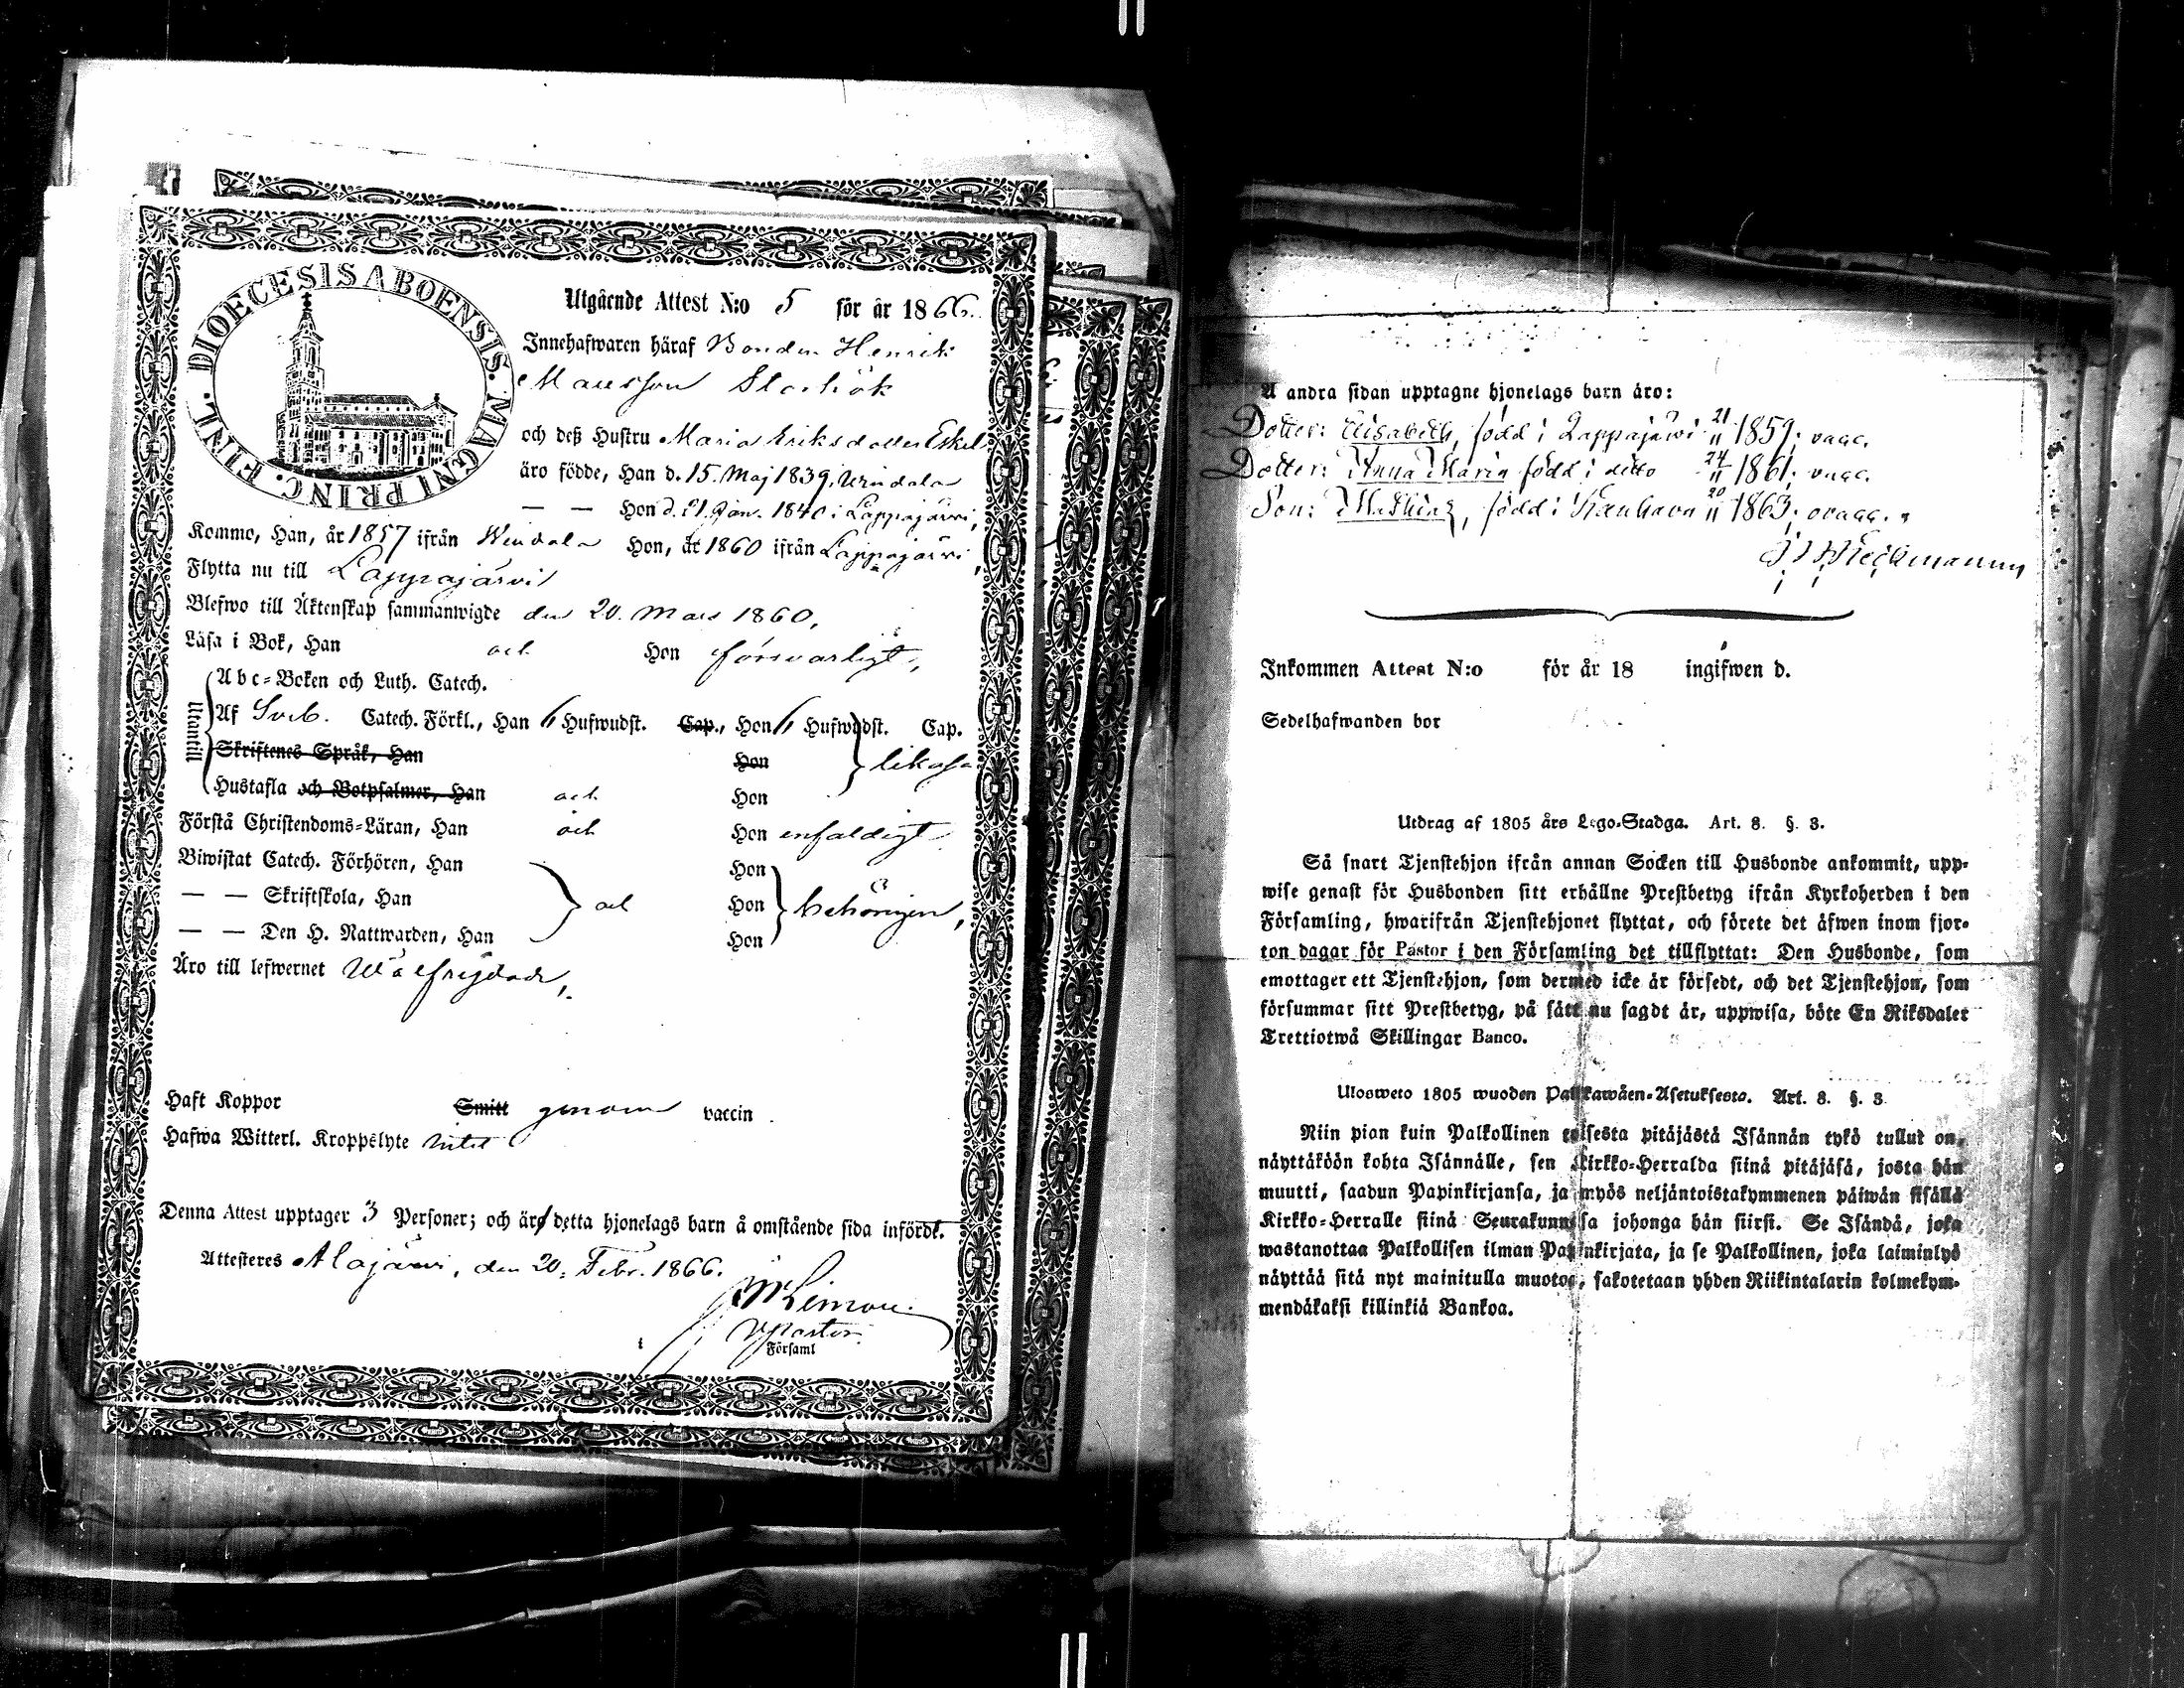 DIOECESIS ABOENSIS. MAGNI PRINC. FINL.
Utgående Attest N:o 5 för år 1866.
Innehafwaren häraf Bonden Henrik
Mansson Storhök
och deß Hustru Maria Eriksdotter Eskel
äro födde, Han d. 15. Maj 1839. Windala
— — Hon d. 21. Jan. 1840 i Lappajärvi,
Kommo, Han, år 1857 ifrån Windala Hon, år 1860 ifrån Lappajärvi,
Flytta nu till Lappajärvi
Blefwo till Äktenskap sammanwigde den 20. Mars 1860,
Läsa i Bok, Han och Hon försvarligt,
Utantill
Abc-Boken och Luth. Catech.
Af Sveb. Catech. Förkl., Han 6 Hufwudst. Cap., Hon 6 Hufwudst. Cap.
Skriftenes Språk, Han Hon likaså
Hustafla och Botpsalmer, Han och Hon
Förstå Christendoms-Läran, Han och Hon enfaldigt
Biwistat Catech. Förhören, Han Hon
— — Skriftskola, Han och Hon behörigen,
— — Den H. Nattwarden, Han Hon
Äro till lefwernet Wälfrejdade,
Haft Koppor Smitt genom vaccin
Hafwa Witterl. Kroppslyte intet
Denna Attest upptager 3 Personer; och äro detta hjonelags barn å omstående sida införde.
Attesteres Alajärvi, den 20. Febr. 1866.
VPastor
Församl
Å andra sidan upptagne hjonelags barn äro:
Dotter: Elisabeth, född i Lappajärvi 21/11 1859; vacc.
Dotter: Anna Maria född i ditto 24/11 1861; vacc.
Son: Mathias, född i Kauhava 20/11 1863; ovacc.
Inkommen Attest N:o för år 18 ingifwen d.
Sedelhafwanden bor
Utdrag af 1805 års Lego-Stadga. Art. 8. §. 3.
Så snart Tjenstehjon ifrån annan Socken till Husbonde ankommit, upp-
wise genast för Husbonden sitt erhållne Prestbetyg ifrån Kyrkoherden i den
Församling, hwarifrån Tjenstehjonet flyttat, och förete det äfwen inom fjor-
ton dagar för Pastor i den Församling det tillflyttat: Den Husbonde, som
emottager ett Tjenstehjon, som dermed icke är försedt, och det Tjenstehjon, som
försummar sitt Prestbetyg, på sätt nu sagdt är, uppwisa, böte En Riksdaler
Trettiotwå Skillingar Banco.
Ulosweto 1805 wuoden Palkkawäen-Asetuksesta. Art. 8. §. 3
Niin pian kuin Palkollinen toisesta pitäjästä Isännän tykö tullut on,
näyttäköön kohta Isännälle, sen Kirkko-Herralda siinä pitäjäsä, josta hän
muutti, saadun Papinkirjansa, ja myös neljäntoistakymmenen päiwän sisällä
Kirkko-Herralle siinä Seurakunnasa johonga hän siirsi. Se Isändä, joka
wastanottaa Palkollisen ilman Papinkirjata, ja se Palkollinen, joka laiminlyö
näyttää sitä nyt mainitulla muotoa, sakotetaan yhden Riikintalarin kolmekym-
mendäkaksi killinkiä Bankoa.